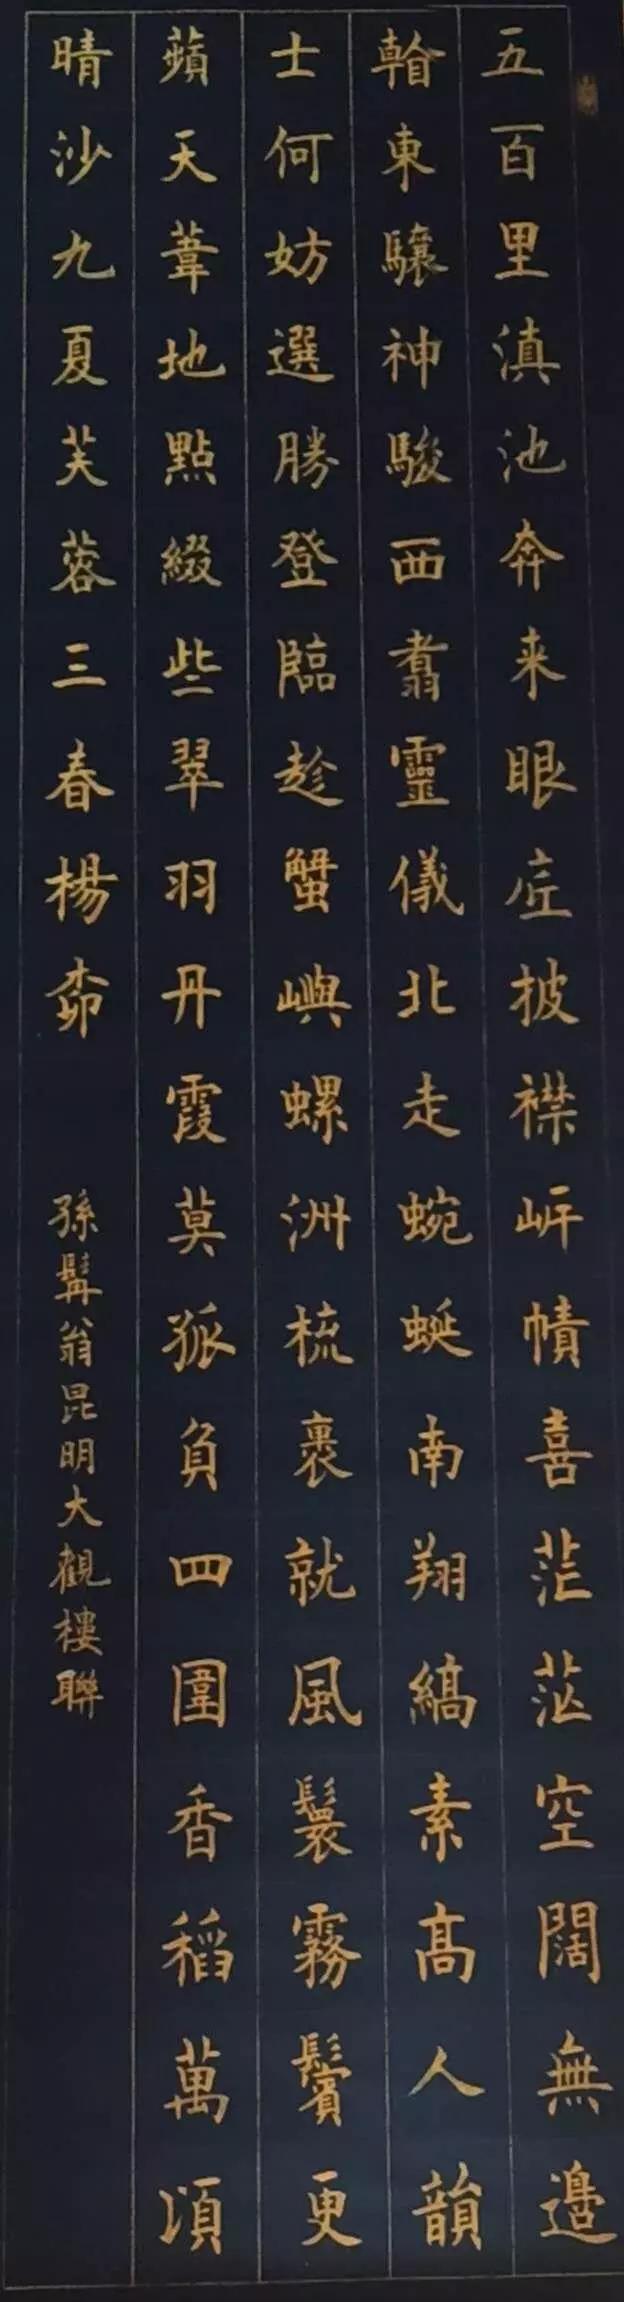 五百里滇池奔来眼底披襟岸幘喜茫茫空闊無邉
看東驤神駿西翥靈儀北走蜿蜒南翔縞素高人韻
士何妨選勝登臨趁蟹嶼螺洲梳裹就風鬟霧鬢更
蘋天葦地點綴些翠羽丹霞莫孤負四圍香稻萬頃
晴沙九夏芙蓉三春楊柳
孫髯翁昆明大觀樓聯